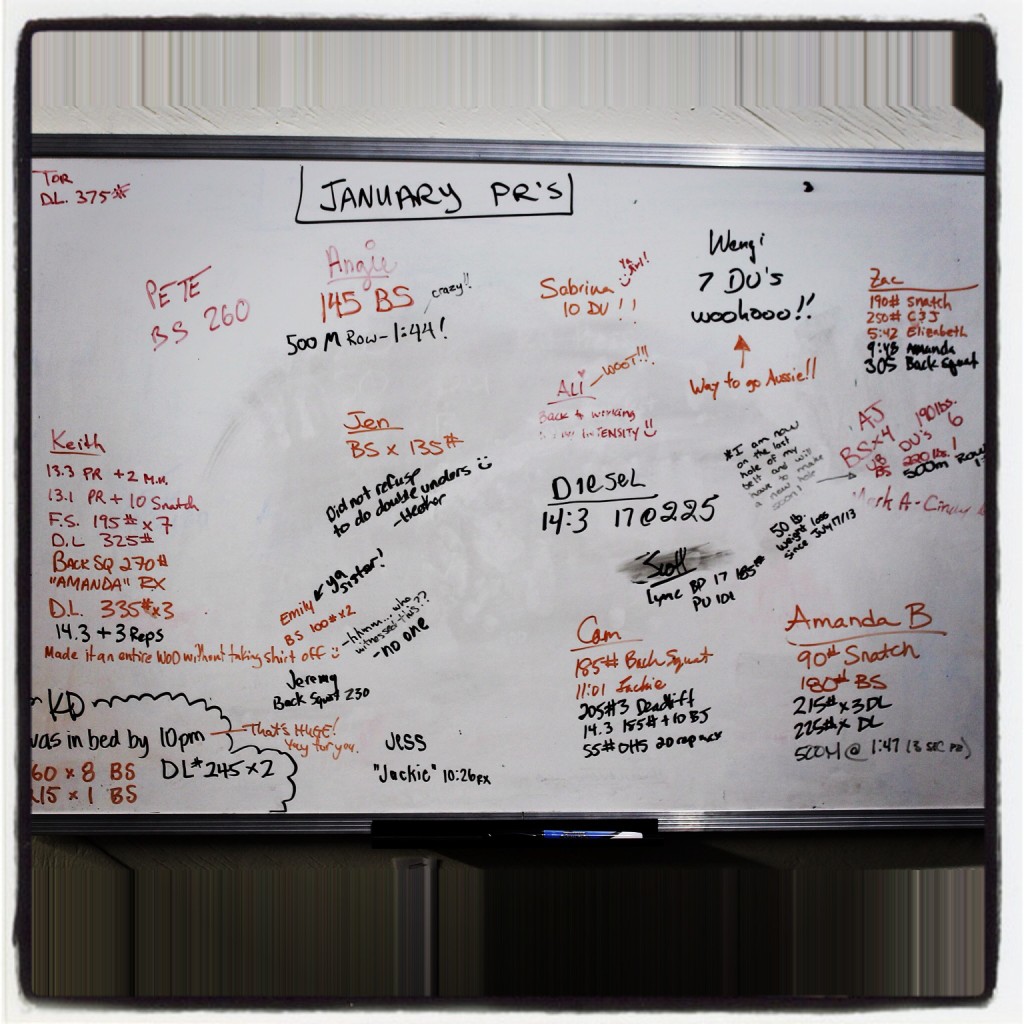 JANUARY PR'S
TOR
DL. 375#
PETE
BS 260
Angie
145 BS
crazy!!
500 M Row - 1:44!
Sabrina
Ya girl!
10 DU!!
Wengi
7 DU's
woohooo!!
Way to go Aussie!!
Zac
190# Snatch
250# C&J
5:42 Elizabeth
9:48 Amanda
305 Back Squat
ALI
WOOT!!!
Back to working
INTENSITY
Keith
13.3 PR + 2 M.U.
13.1 PR + 10 Snatch
F.S. 195# x 7
D.L 325#
BACK SQ 270#
"AMANDA" RX
D.L. 335# x 3
14.3 + 3 Reps
Made it an entire WOD without taking shirt off
Jen
BS x 135#
Did not refuse
to do double unders
- Heather
DIESEL
14:3 17@225
*I am now
on the last
hole of my
belt and will
have to make
a new hole
soon!
AJ
BSx4 190 lbs.
DU's 6
BS 220 lbs. 1
500m Row
Mark A-
50 lb.
weight loss
since July 17/13
Scott
BP 17 185#
PU 101
Emily
ya sister!
BS 100# x 2
-hhmm...who
witnessed this??
-no one
Jeremy
Back Squat 230
Cam
185# Back Squat
11:01 Jackie
205#3 Deadlift
14.3 155# + 10 BJ
55# OHS 20 rep
Amanda B
90# Snatch
180# BS
215# x 3 DL
225# x DL
500M @ 1:47 (3 SEC PB)
KD
was in bed by 10pm
That's HUGE!
Yay for you.
60 x 8 BS
DL# 245 x 2
15 x 1 BS
JESS
"Jackie" 10:26 RX